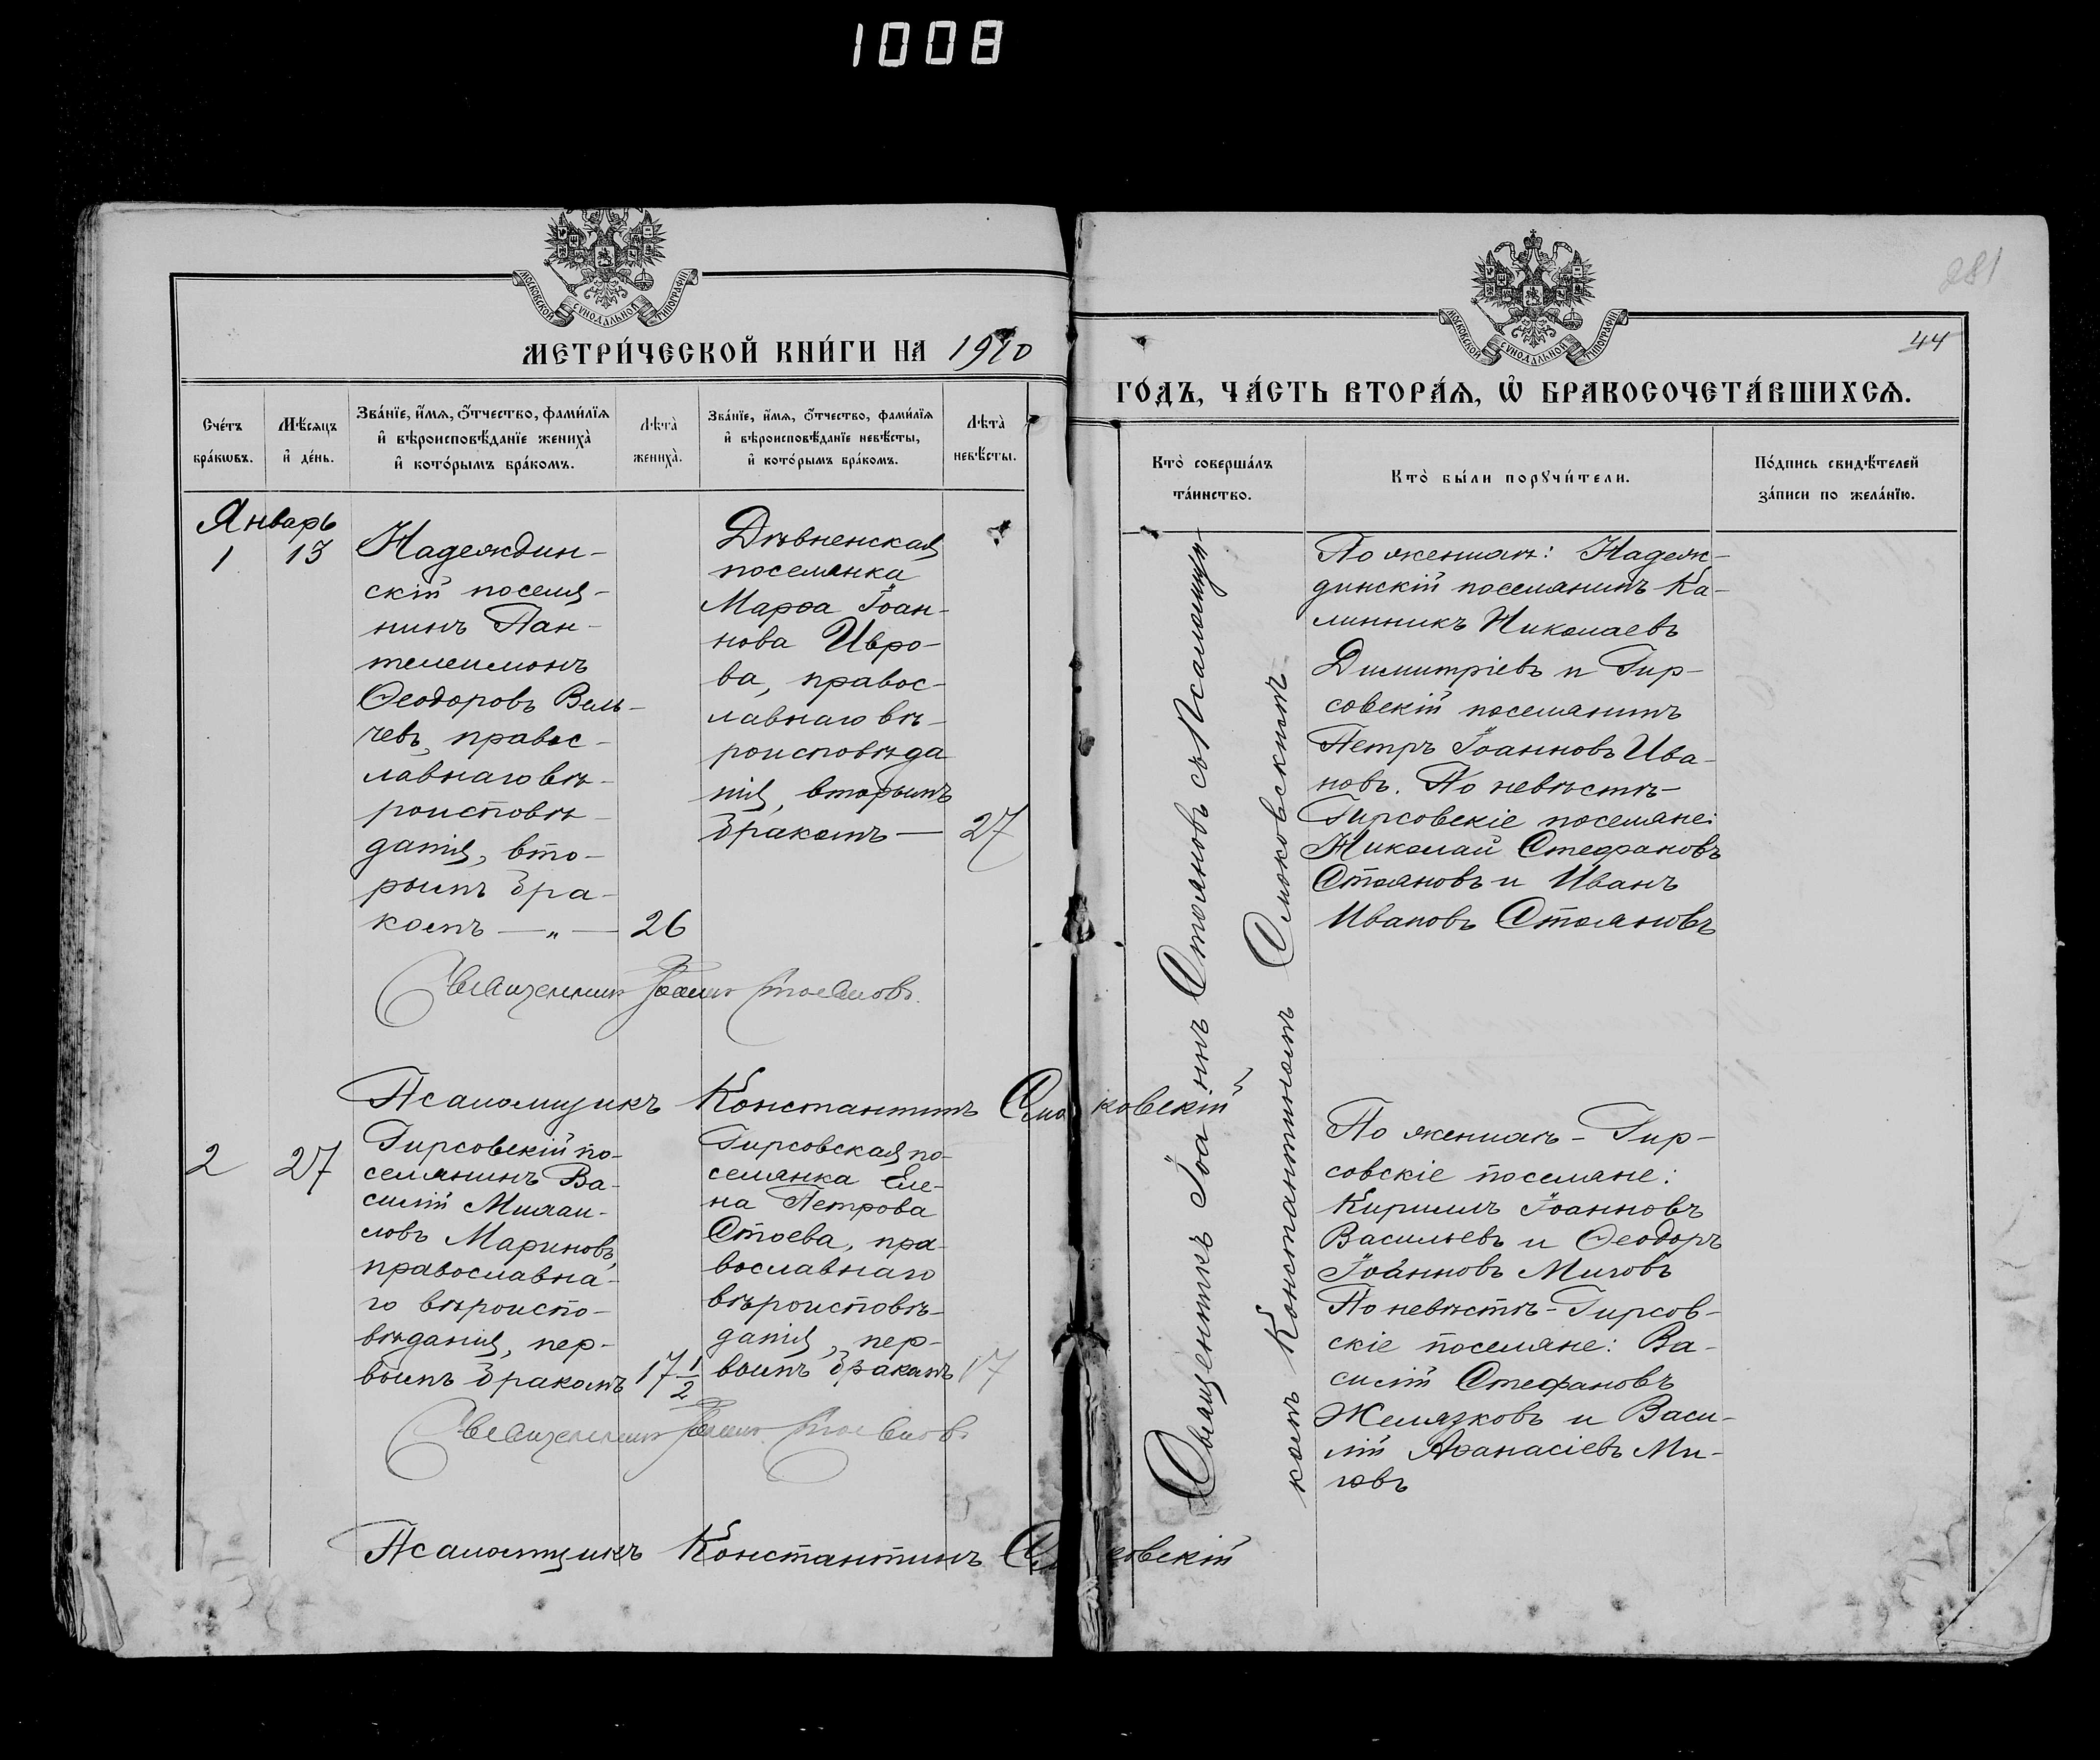 1008
МОСКОВСКОЙ СѴНОДАЛЬНОЙ ТИПОГРАФІИ
МЕТРИ́ЧЕСКОЙ КНИ́ГИ НА 1910
Сче́тъ бра́кѡвъ.
Мѣ́сяцъ и҆ де́нь.
Зва́нїе, и҆́мя, ѻ҆́тчество, фами́лїя
и҆ вѣроисповѣ́данїе жениха̀
и҆ кото́рымъ бра́комъ.
Лѣта̀ жениха̀.
Зва́нїе, и҆́мя, ѻ҆́тчество, фами́лїя
и҆ вѣроисповѣ́данїе невѣ́сты,
и҆ кото́рымъ бра́комъ.
Лѣта̀ невѣ́сты.
Январь
1
13
Надеждин-
скій поселя-
нинъ Пан-
телеимонъ
Ѳеодоровъ Вель-
чевъ, правос-
лавнаго вѣ-
роисповѣ-
данія, вто-
рымъ бра-
комъ — „ — 26
Дѣвненская
поселянка
Марѳа Іоан-
нова Ивро-
ва, правос-
лавнаго вѣ-
роисповѣда
нія, вторымъ
бракомъ — 27
Священникъ Іоаннъ Стояновъ.
Псаломщикъ Константинъ Смоковскій
2
27
Гирсовскій по-
селянинъ Ва-
силій Михаи-
ловъ Мариновъ,
православна-
го вѣроиспо-
вѣданія, пер-
вымъ бракомъ 17 1/2
Гирсовская по-
селянка Еле-
на Петрова
Стоева, пра-
вославнаго
вѣроисповѣ-
данія, пер-
вымъ бракомъ 17
Священникъ Іоаннъ Стояновъ
Псаломщикъ Константинъ
281
МОСКОВСКОЙ СѴНОДАЛЬНОЙ ТИПОГРАФІИ
44
ГО́ДЪ, ЧА́СТЬ ВТОРА́Я, Ѡ҆ БРАКОСОЧЕТА́ВШИХСЯ.
Кто̀ соверша́лъ
та́инство.
Кто̀ бы́ли порꙋчи́тели.
По́дпись свидѣ́телей
за́писи по жела́нїю.
Священникъ Іоаннъ Стояновъ съ Псаломщи-
комъ Константиномъ Смоковскимъ
По женихѣ: Надеж-
динскій поселянинъ Ка-
линникъ Николаевъ
Димитріевъ и Гир-
совскій поселянинъ
Петръ Іоанновъ Ива-
новъ. По невѣстѣ-
Гирсовскіе поселяне:
Николай Стефановъ
Стояновъ и Иванъ
Ивановъ Стояновъ
По женихѣ - Гир-
совскіе поселяне:
Кириллъ Іоанновъ
Васильевъ и Ѳеодоръ
Іоанновъ Миговъ
По невѣстѣ - Гирсов-
скіе поселяне: Ва-
силій Стефановъ
Желязковъ и Васи-
лій Аѳанасіевъ Ми-
говъ